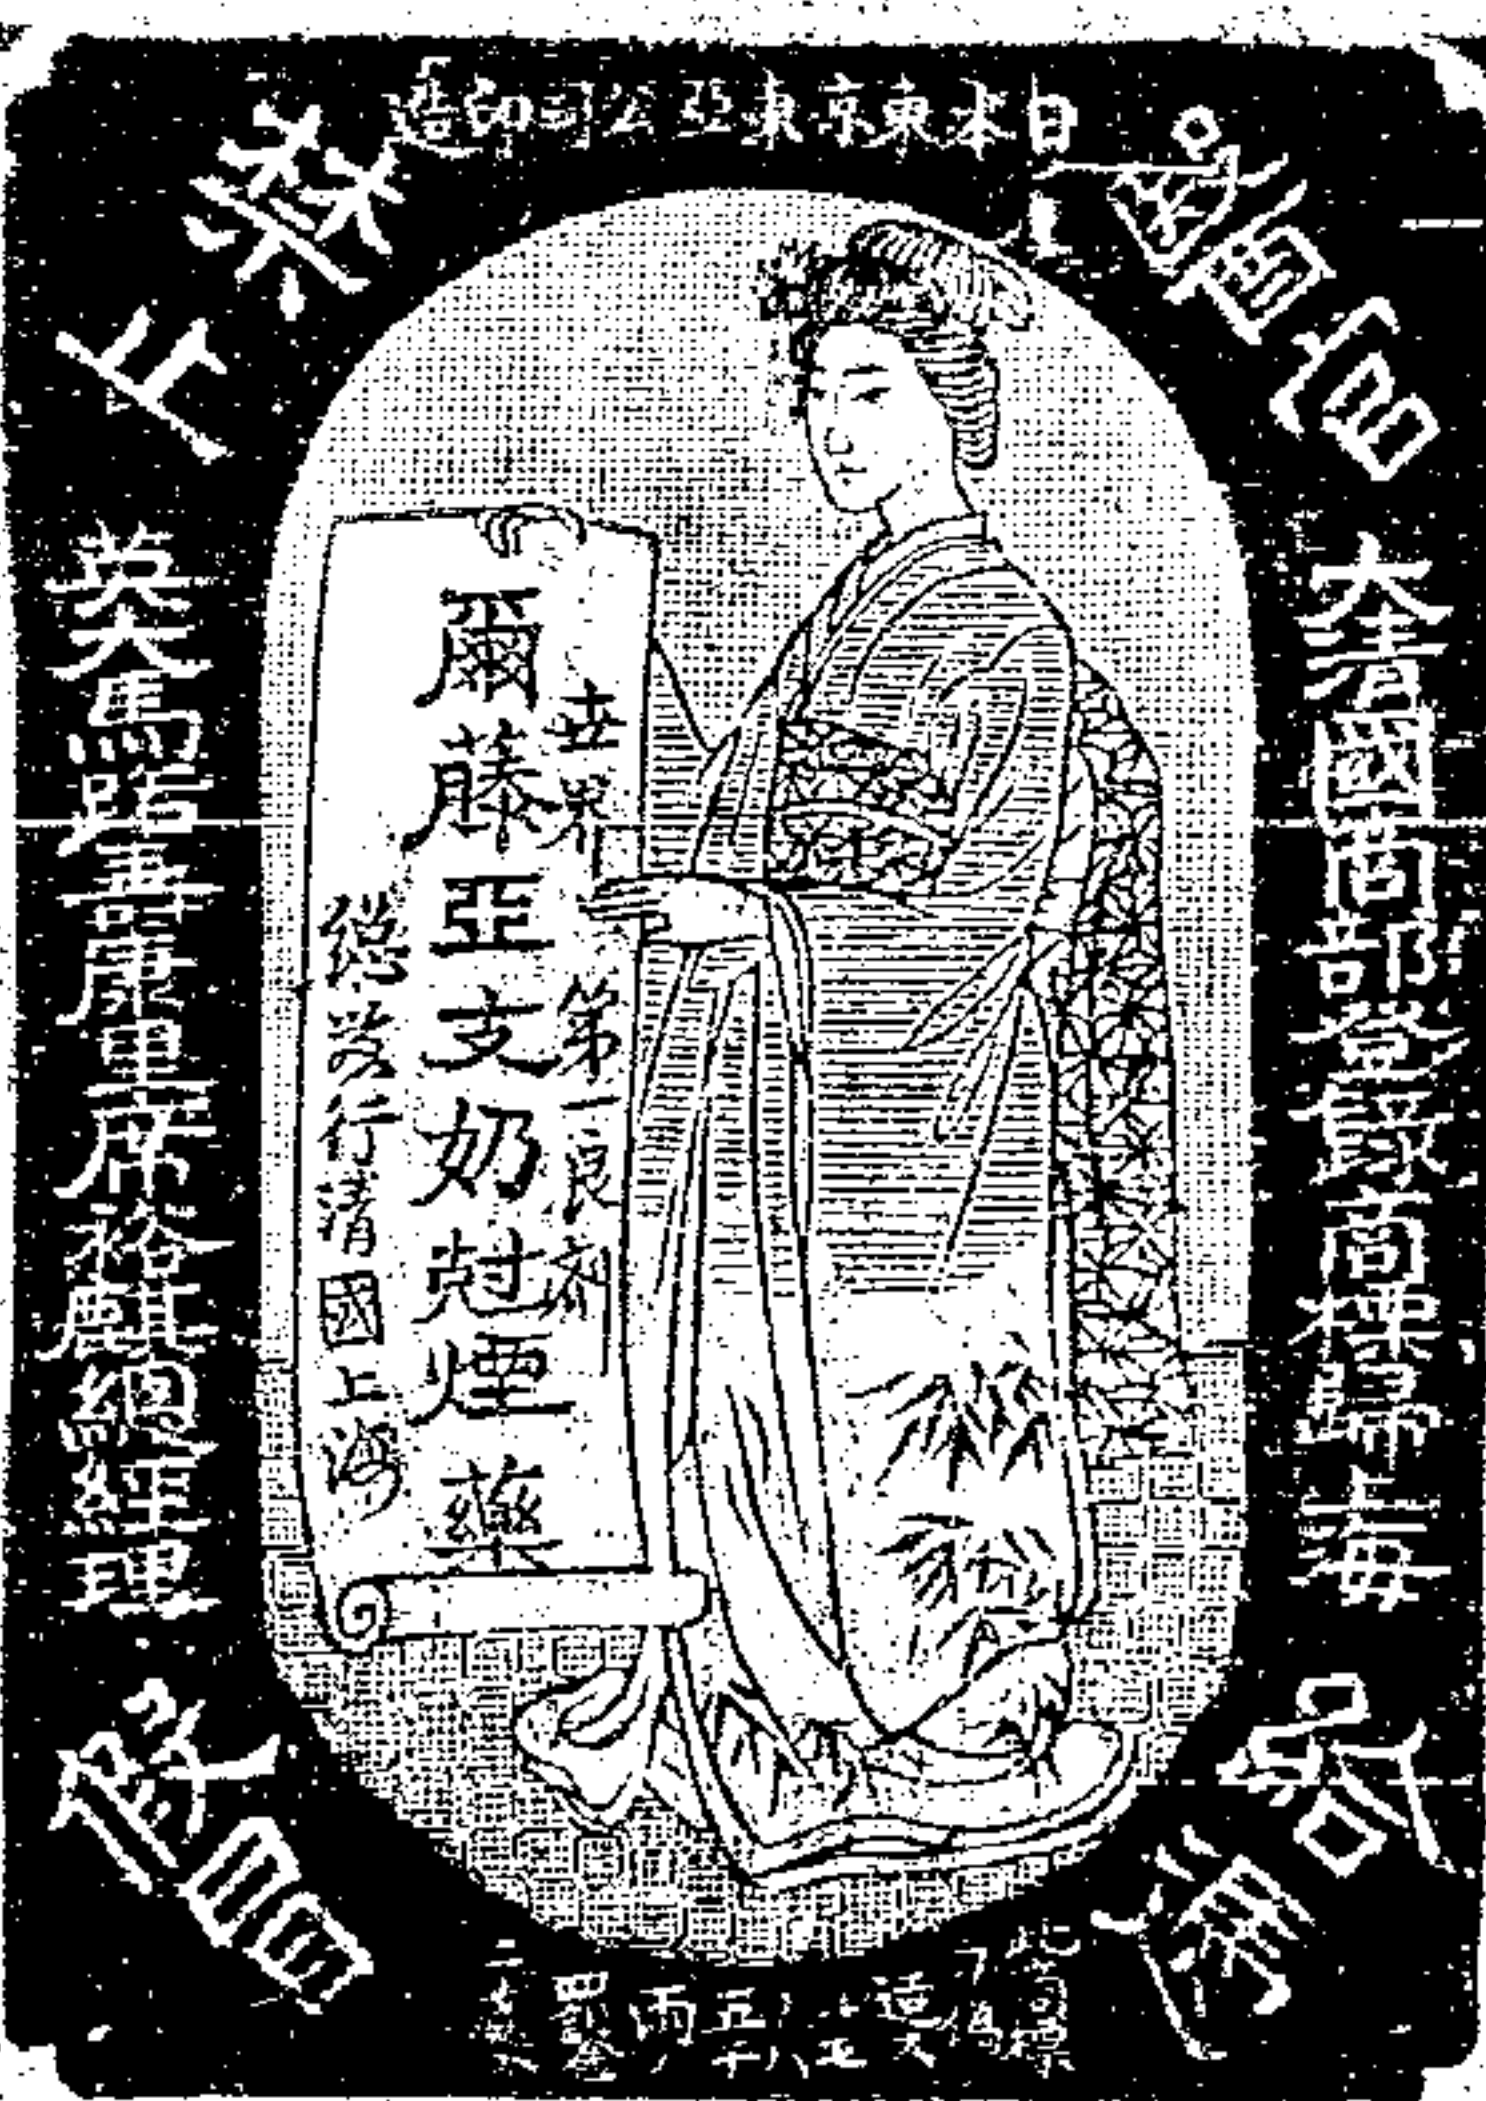 日本東京東亞公司印造
大清國商部登錄商標歸上海
英大馬路壽康里席裕麒總經理
禁止
假冒
世界第一良劑
爾藤亞支奶尅煙藥
總發行清國上海